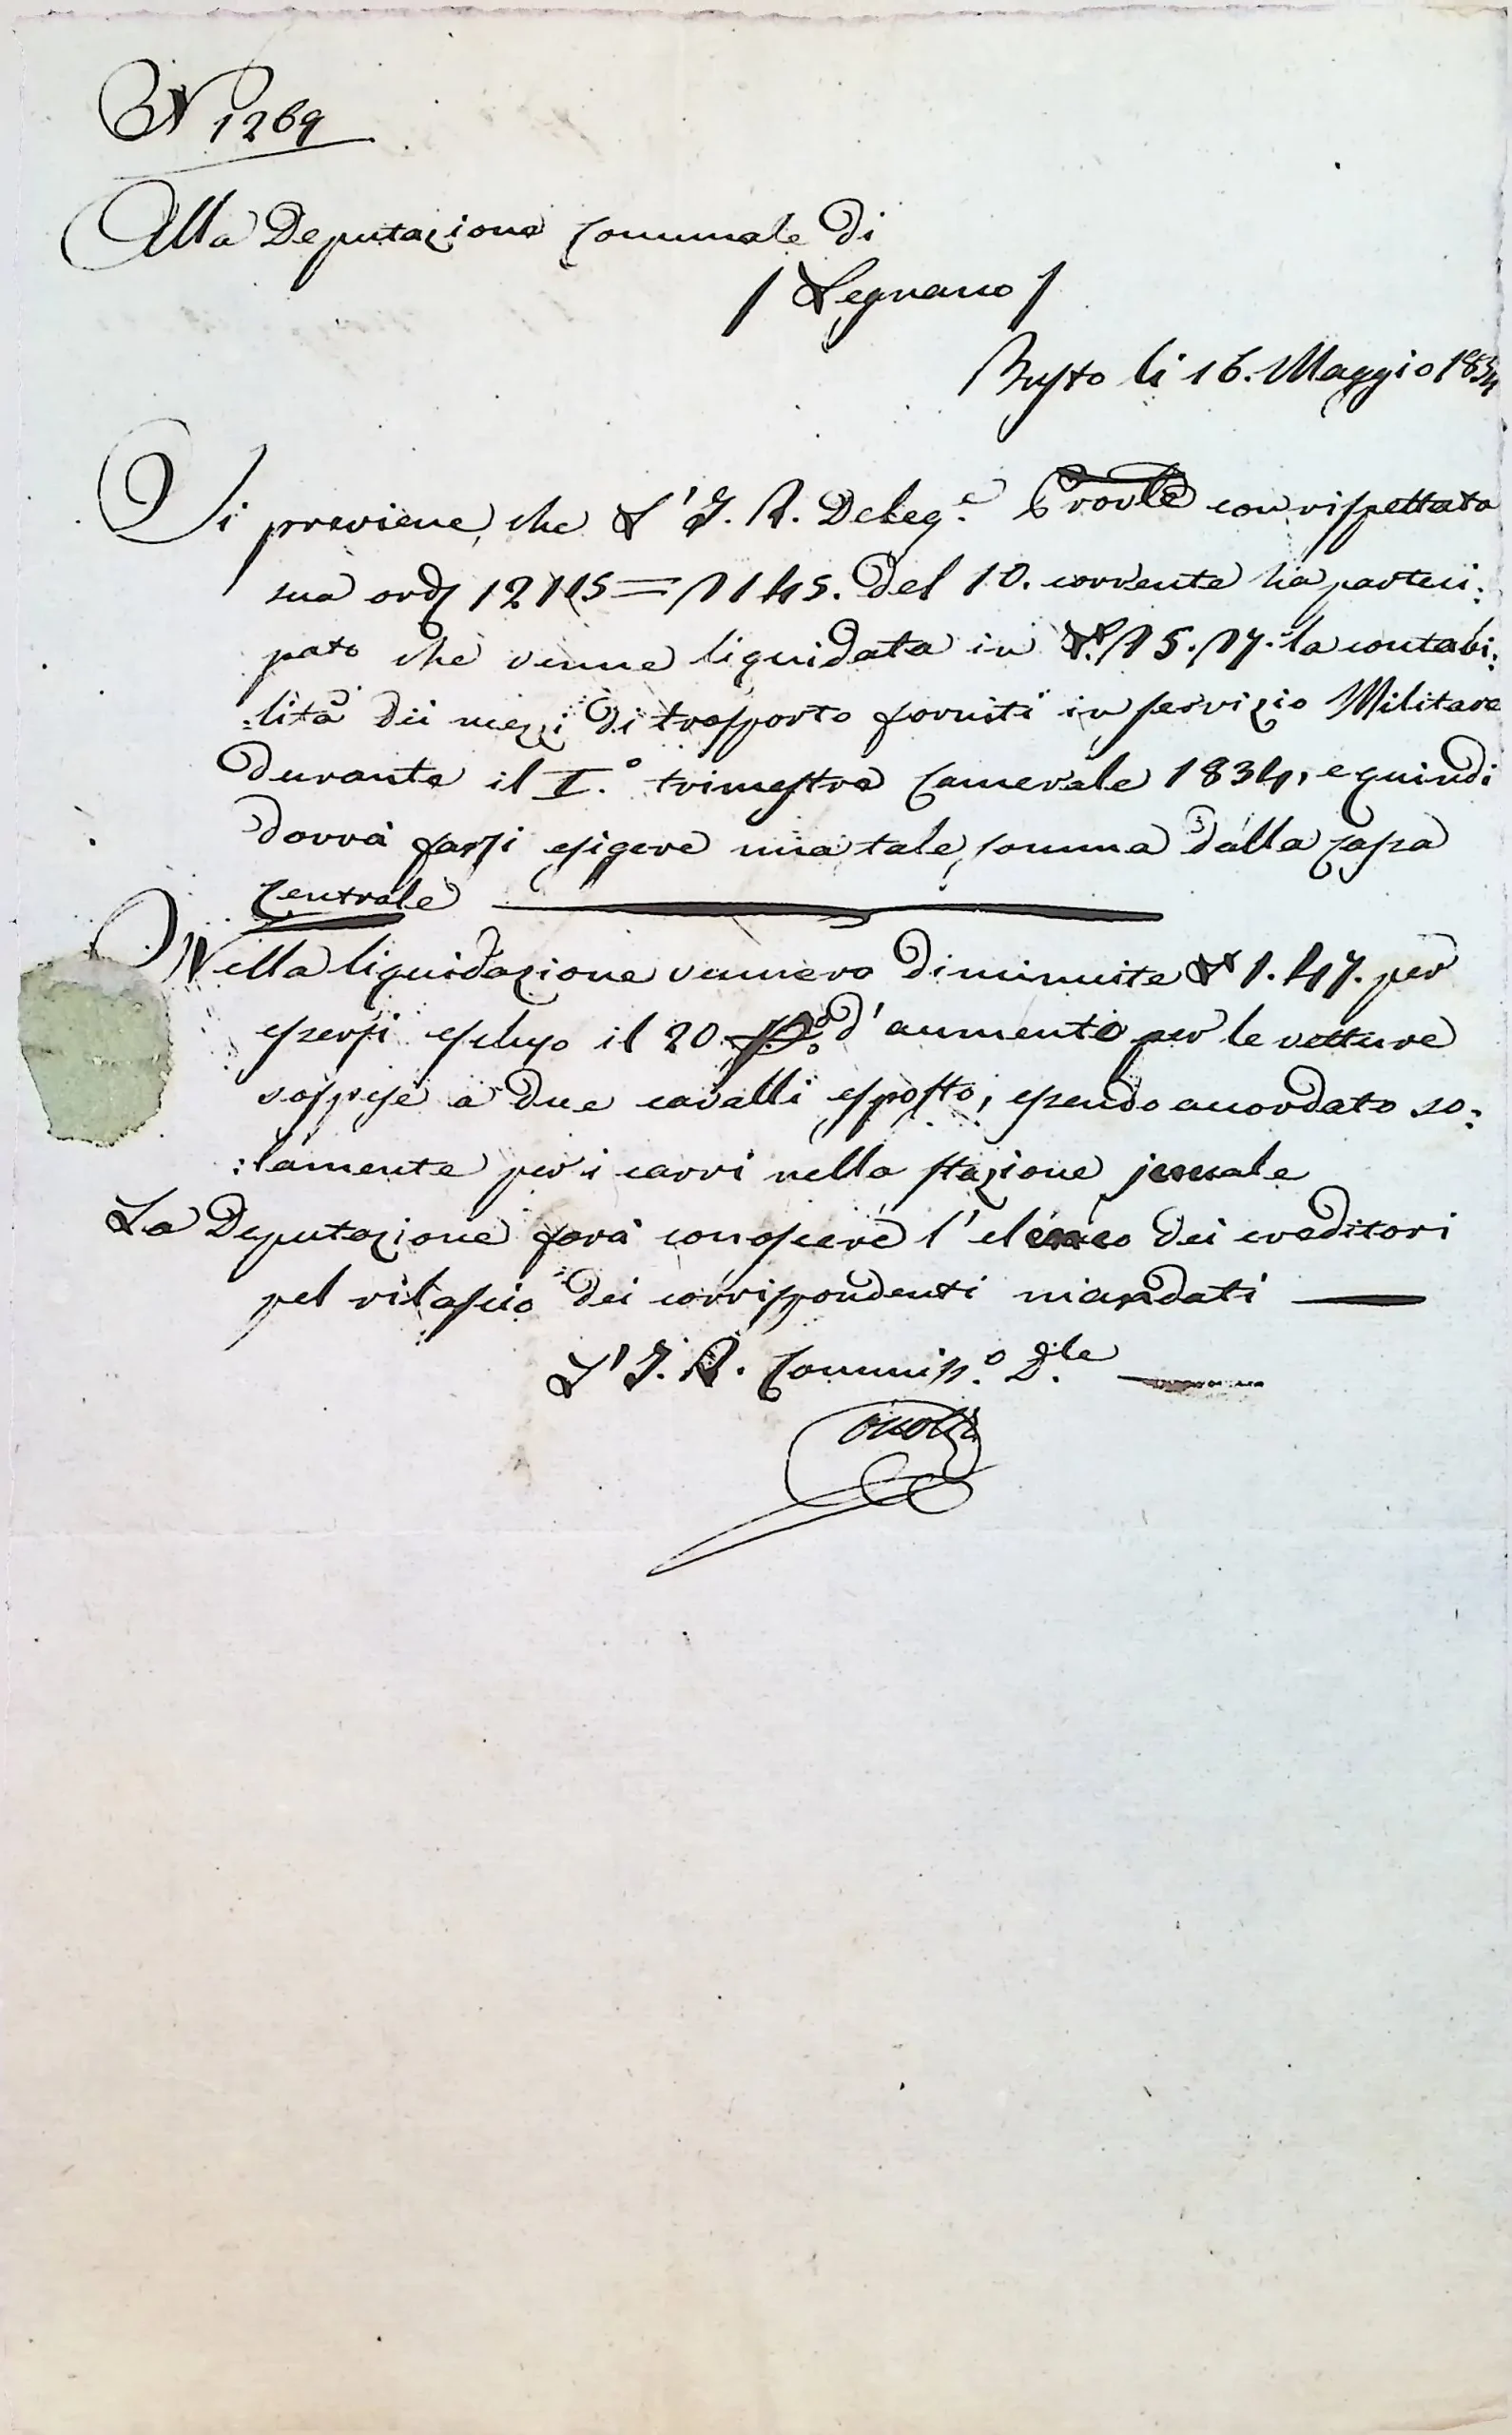 N 1269
Alla Deputazione Comunale di
/ Legnano /
Busto li 16. Maggio 1834
Si previene, che L'I. R. Deleg.e Prov.le con rispettata
sua ord. 12115 = 1145. del 10. corrente ha parteci:
pato che venne liquidata in £ 15.17. la contabi:
:lità dei mezzi di trasporto forniti in servizio Militare
durante il I.o trimestre Camerale 1834, e quindi
dovrà farsi esigere una tale somma dalla Cassa
Centrale
Nella liquidazione vennero diminuite £ 1.47. per
essersi escluso il 20 d'aumento per le vetture
sospese a due cavalli esposto, essendo accordato so:
:lamente per i carri nella stazione jemale
La Deputazione farà conoscere l'elenco dei creditori
pel rilascio dei corrispondenti mandati
L'I. R. Commiss.o D.le